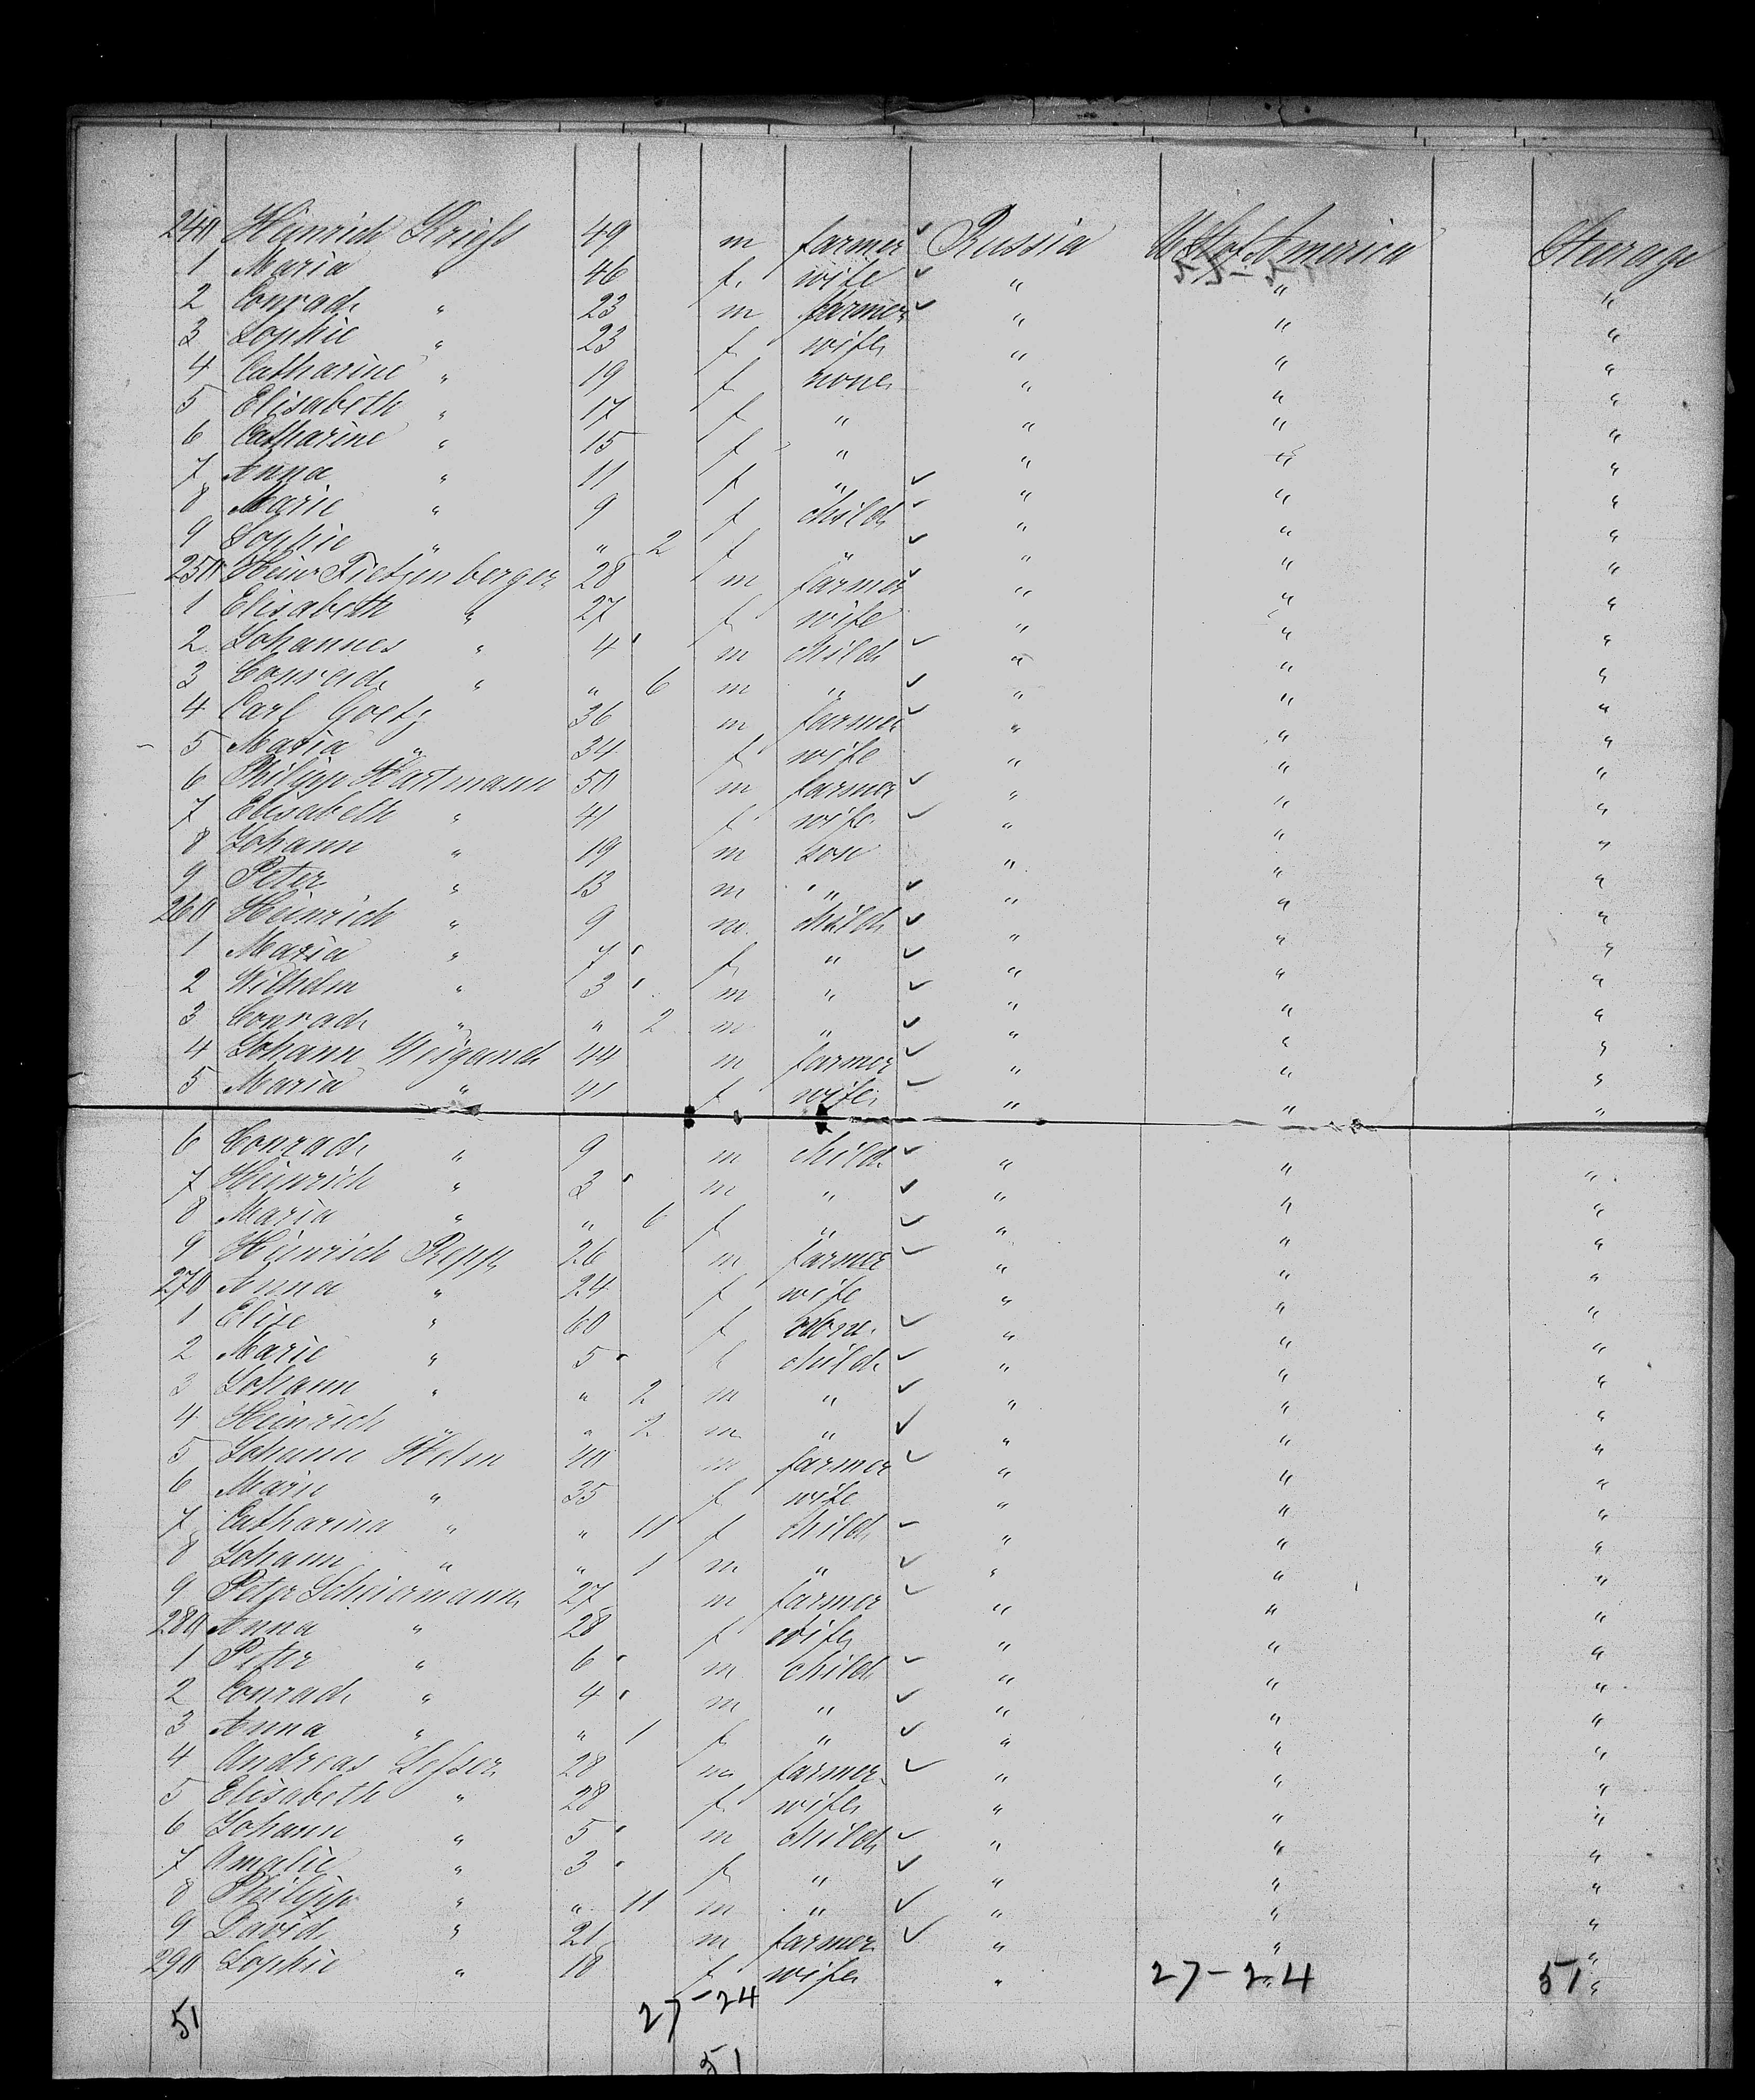 240 Heinrich Kriehs 49 m farmer ✓ Russia U St of America Steerage
1 Maria " 46 f. wife ✓ " " "
2 Conrad " 23 m farmer ✓ " " "
3 Sophie " 23 f wife " " "
4 Catharine " 19 f none " " "
5 Elisabeth " 17 f " " " "
6 Catharine " 15 f " " " "
7 Anna " 11 f " ✓ " " "
8 Marie " 9 f child ✓ " " "
9 Sophie " " 2 f " ✓ " " "
250 Heinr Fietzenberger 28 m farmer ✓ " " "
1 Elisabeth " 27 f wife " " "
2 Johannes " 4 m child ✓ " " "
3 Conrad " " 6 m " ✓ " " "
4 Carl Goetz 36 m farmer ✓ " " "
5 Maria " 34 f wife " " "
6 Philipp Hartmann 50 m farmer ✓ " " "
7 Elisabeth " 41 f wife ✓ " " "
8 Johann " 19 m son " " "
9 Peter " 13 m " ✓ " " "
260 Heinrich " 9 m child ✓ " " "
1 Maria " 7 f " ✓ " " "
2 Wilhelm " 3 m " ✓ " " "
3 Conrad " " 2 m " ✓ " " "
4 Johann Weigand 44 m farmer ✓ " " "
5 Maria " 41 f wife ✓ " " "
6 Conrad " 9 m child ✓ " " "
7 Heinrich " 3 m " ✓ " " "
8 Maria " " 6 f " ✓ " " "
9 Heinrich Repp 26 m farmer ✓ " " "
270 Anna " 24 f wife " " "
1 Elise " 60 f none ✓ " " "
2 Marie " 5 f child ✓ " " "
3 Johann " " 2 m " ✓ " " "
4 Heinrich " " 2 m " ✓ " " "
5 Johann Helm 40 m farmer ✓ " " "
6 Marie " 35 f wife " " "
7 Catharina " " 11 f child ✓ " " "
8 Johann " " 1 m " ✓ " " "
9 Peter Scheiermann 27 m farmer ✓ " " "
280 Anna " 28 f wife " " "
1 Peter " 6 m child ✓ " " "
2 Conrad " 4 m " ✓ " " "
3 Anna " " 1 f " ✓ " " "
4 Andreas Lesser 28 m farmer ✓ " " "
5 Elisabeth " 28 f wife " " "
6 Johann " 5 m child ✓ " " "
7 Amalie " 3 f " ✓ " " "
8 Philipp " " 11 m " ✓ " " "
9 David " 21 m farmer ✓ " " "
290 Sophie " 18 f wife " " "
27-24 51
51 27-24
51